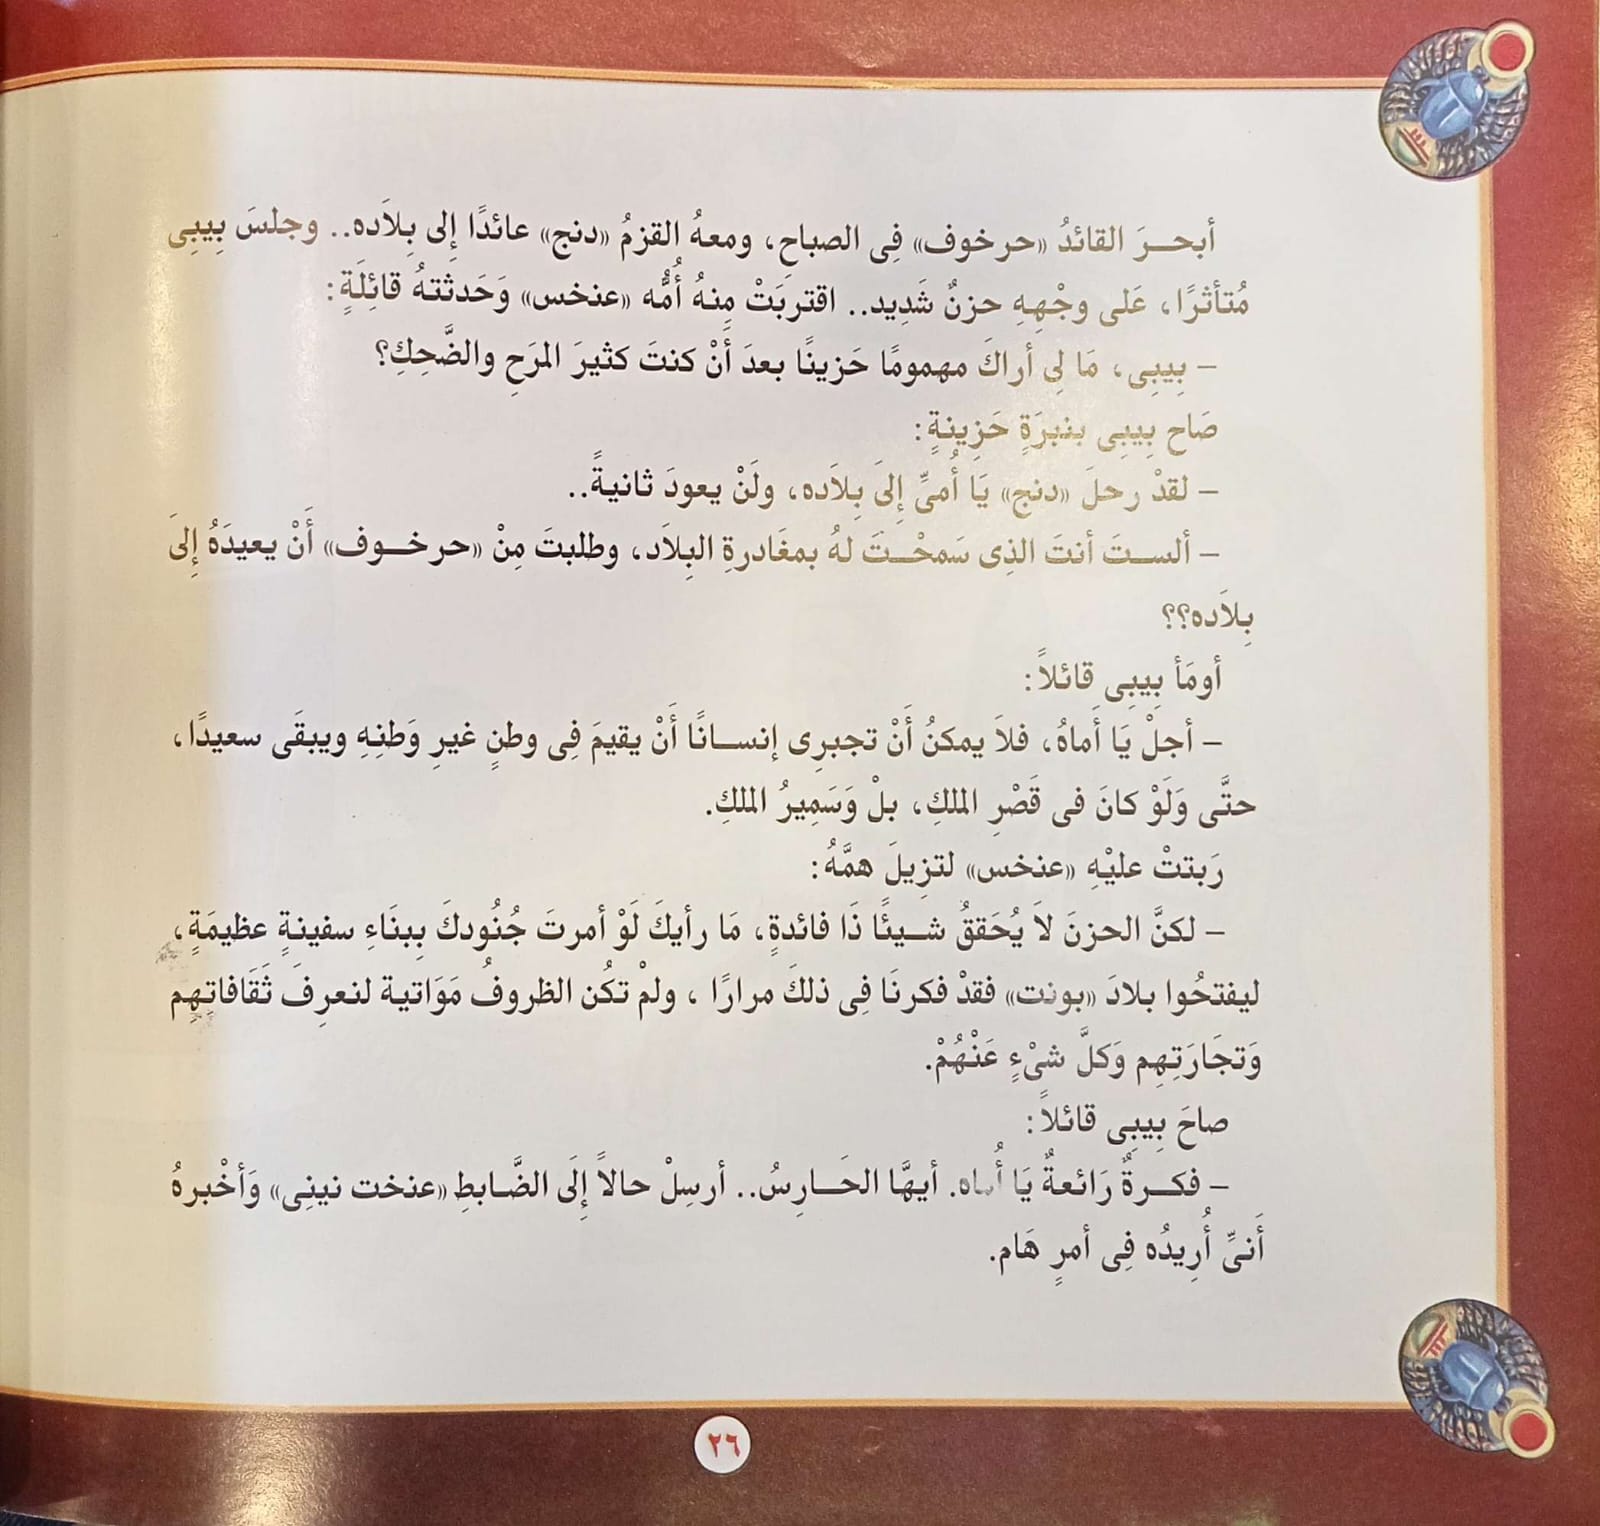 أبحـرَ القائدُ «حرخوف» فِى الصباحِ، ومعهُ القزمُ «دنج» عائدًا إِلى بِلاَده.. وجلسَ بِيبِى
مُتأثرًا، عَلى وجْهِهِ حزنٌ شَدِيد.. اقتربَتْ مِنهُ أُمُّه «عنخس» وَحَدثتهُ قائِلَةٍ:
- بِيبِى، مَا لِى أراكَ مهمومًا حَزينًا بعدَ أَنْ كنتَ كثيرَ المرَحِ والضَّحِكِ؟
صَاح بِيبِى بنبرَةٍ حَزِينةٍ:
- لقدْ رحلَ «دنج» يَا أُمىِّ إِلىَ بِلاَده، ولَنْ يعودَ ثانيةً..
- ألسـتَ أنتَ الذِى سَمحْـتَ لهُ بمغَادرةِ البِلاَد، وطلبتَ مِنْ «حرخـوف» أَنْ يعيدَهُ إِلىَ
بِلاَده؟؟
أومَأ بِيبِى قائلاً:
- أجلْ يَا أَماهُ، فلاَ يمكنُ أَنْ تجبرِى إنسـانًا أَنْ يقيمَ فِى وطنٍ غيرِ وَطنِهِ ويبقَى سعيدًا،
حتَّى وَلَوْ كانَ فى قَصْرِ الملكِ، بلْ وَسَمِيرُ الملكِ.
رَبتتْ عليْهِ «عنخس» لتزِيلَ همَّهُ:
- لكنَّ الحزنَ لاَ يُحَققُ شـيئًا ذَا فائدةٍ، مَا رأيكَ لَوْ أمرتَ جُنُودكَ بِبنَاءِ سفينةٍ عظيمَةٍ،
ليفتحُوا بلادَ «بونت» فقدْ فكرنَا فِى ذلكَ مرارًا ، ولمْ تكُن الظروفُ مَوَاتية لنعرِفَ ثَقَافاتِهِم
وَتجَارَتِهِم وَكلَّ شىْءٍ عَنْهُمْ.
صاحَ بِيبِى قائلاً:
- فكـرةٌ رَائعةٌ يَا أُماه. أيهَّا الحَـارِسُ.. أرسِلْ حالاً إِلَى الضَّـابطِ «عنخت نينِى» وَأخْبرهُ
أَنىِّ أُرِيدُه فِى أمرٍ هَام.
٢٦